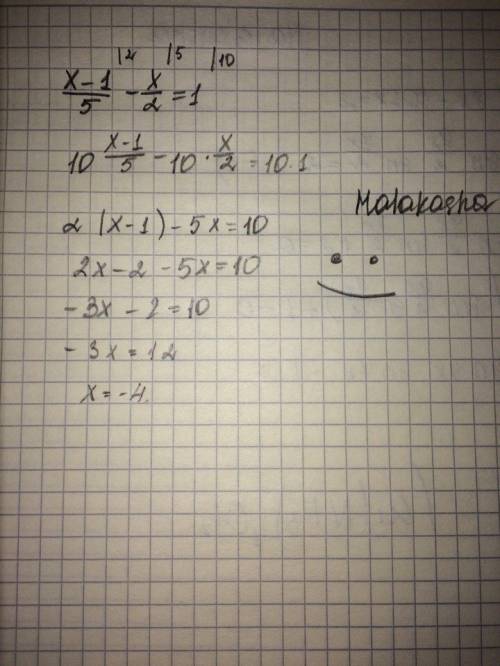 |2 |5 |10
x-1/5 - x/2 = 1
10 x-1/5 - 10 · x/2 = 10·1
2(x-1) - 5x = 10
2x - 2 - 5x = 10
-3x - 2 = 10
-3x = 12
x = -4.